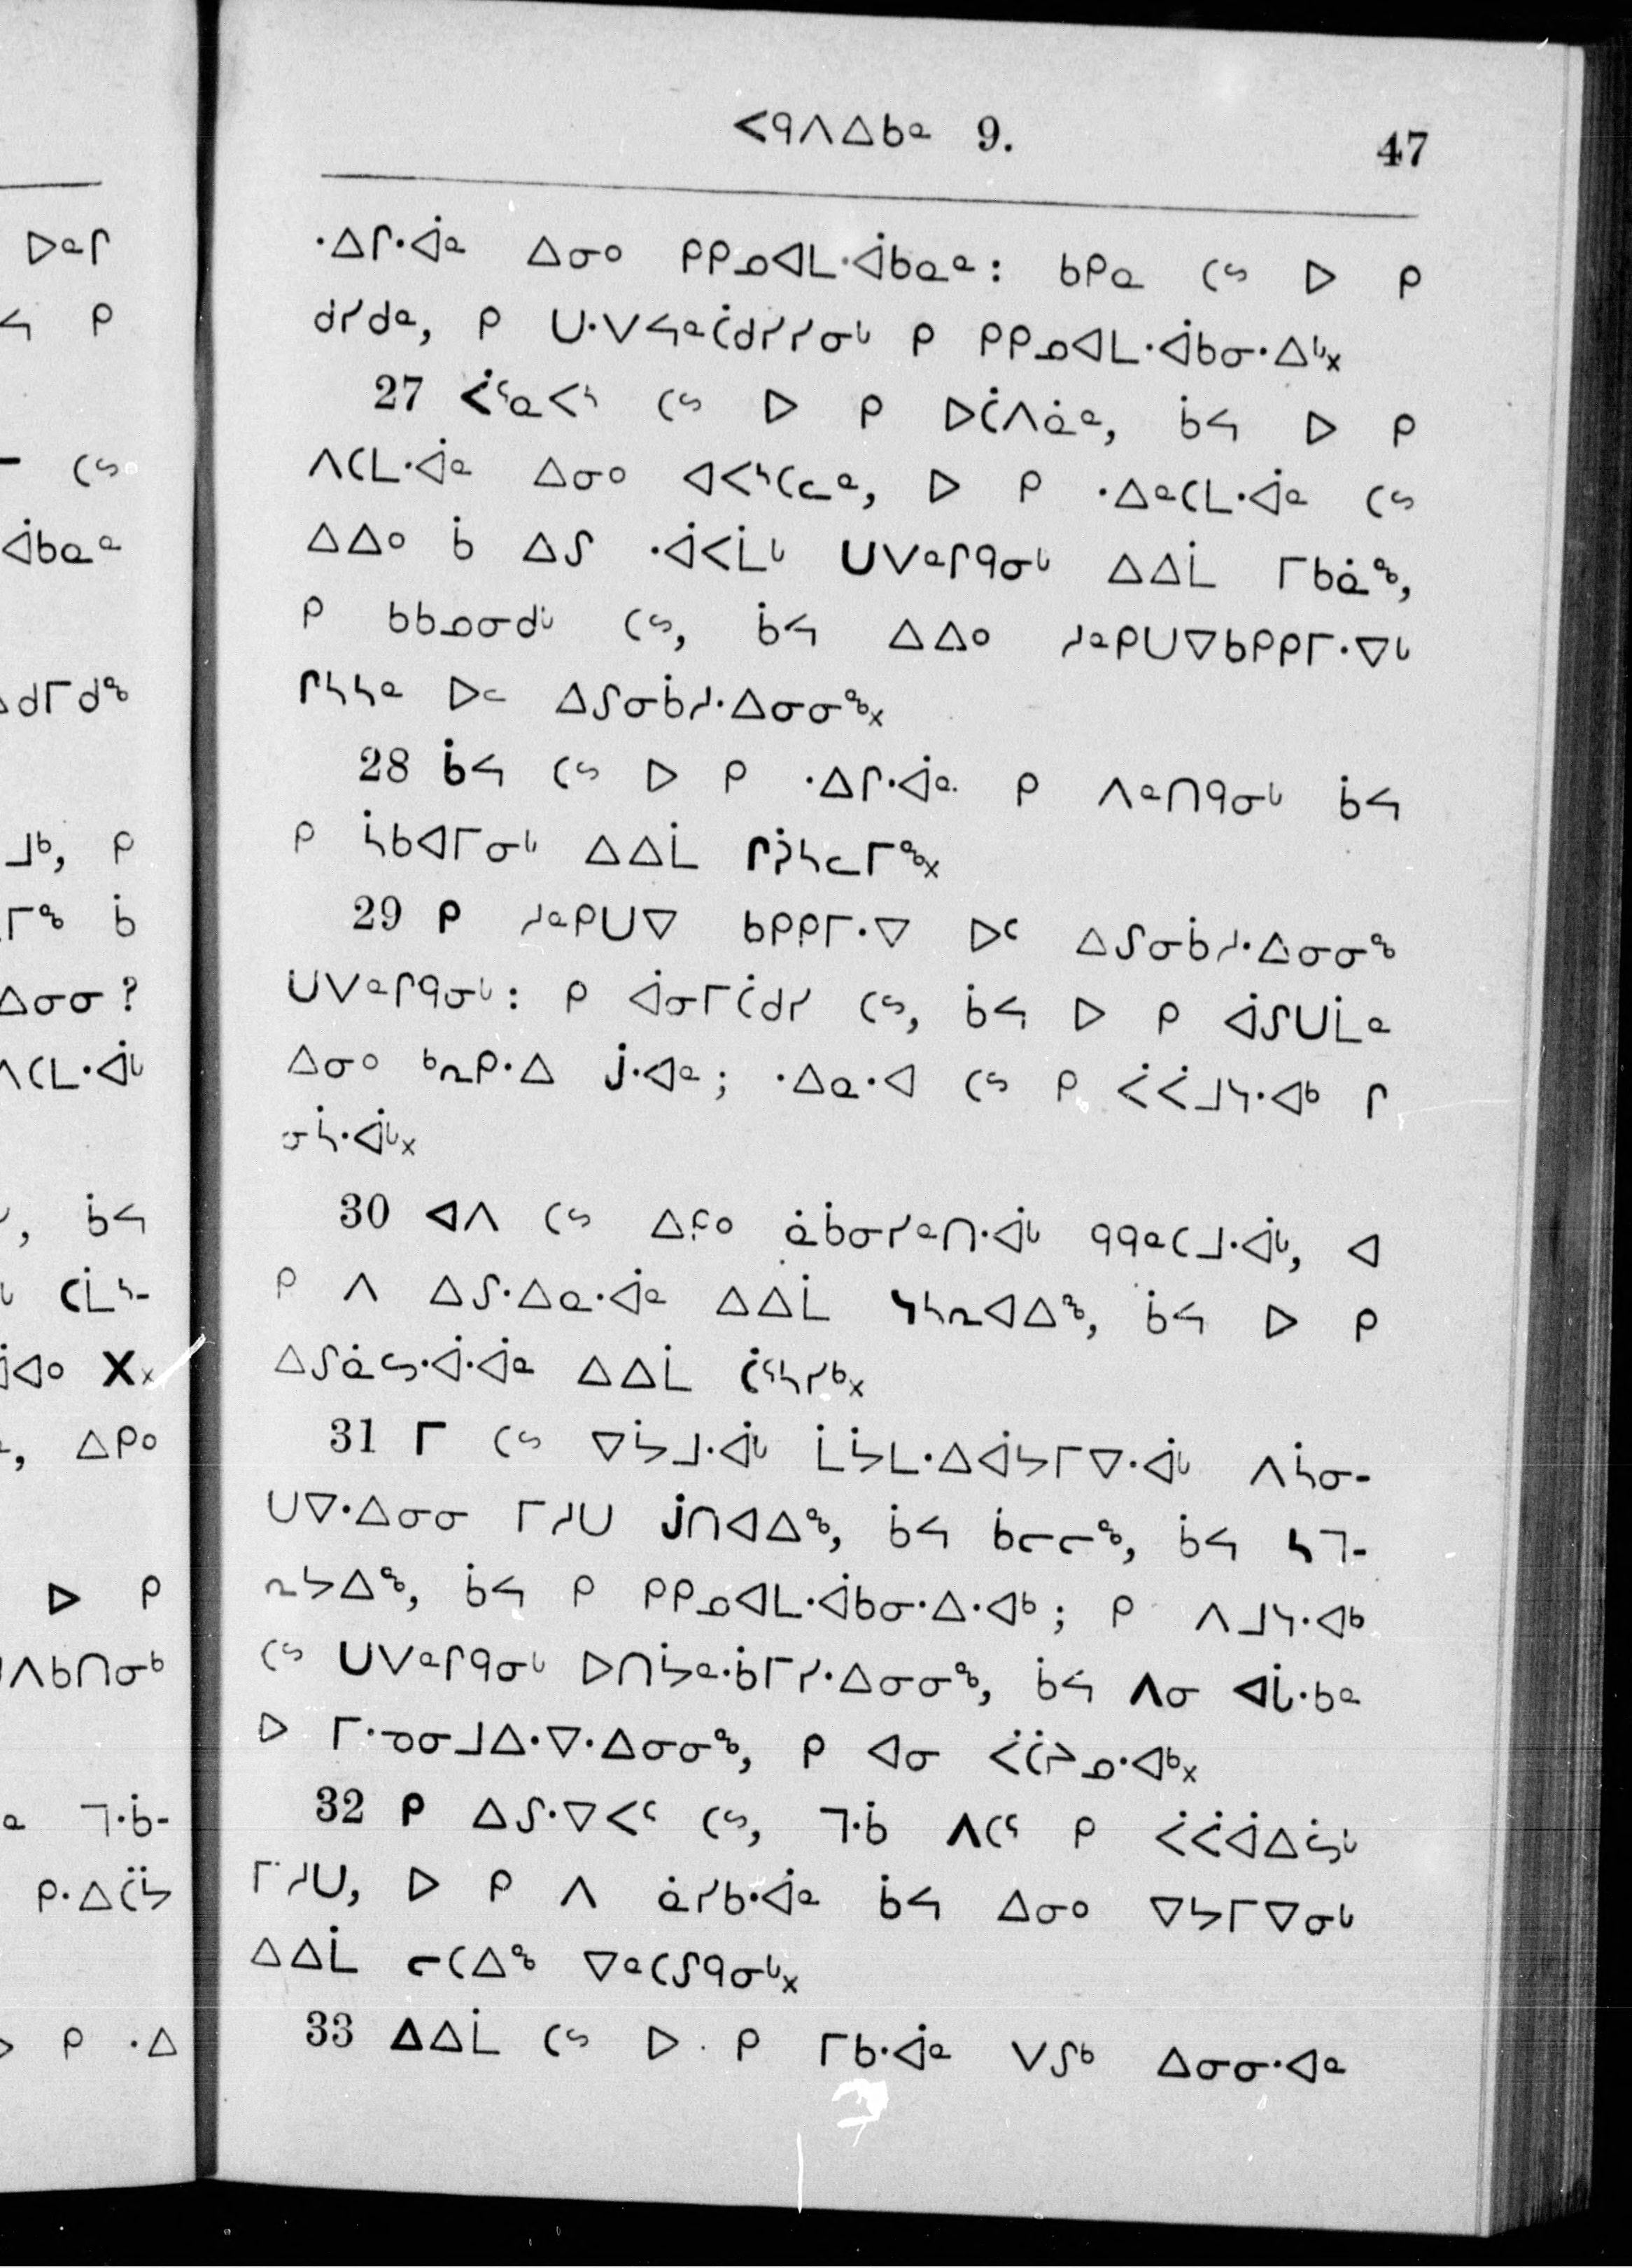 ᐸᑫᐱᐃᑲᓐ 9. 47
ᐧᐃᒋᐧᐋᓐ ᐃᓂᐤ ᑭᑭᓄᐊᒪᐧᐋᑲᓇᓐ: ᑲᑭᓇ ᑕᔥ ᐅ ᑭ
ᑯᓯᑯᓐ, ᑭ ᑌᐧᐯᔭᓐᑖᑯᓯᓯᓂᒡ ᑭ ᑭᑭᓄᐊᒪᐧᐋᑲᓂᐧᐃᒡ᙮
27 ᐹᕐᓇᐸᔅ ᑕᔥ ᐅ ᑭ ᐅᑖᐱᓈᓐ, ᑳᔭ ᐅ ᑭ
ᐱᑕᒪᐧᐋᓐ ᐃᓂᐤ ᐊᐸᔅᑕᓚᓐ, ᐅ ᑭ ᐧᐃᓐᑕᒪᐧᐋᓐ ᑕᔥ
ᐃᐃᐤ ᑳ ᐃᔑ ᐧᐋᐸᒫᒡ ᑌᐯᓐᒋᑫᓂᒡ ᐃᐃᒫ ᒥᑲᓈᓐᒃ,
ᑭ ᑲᑲᓄᓂᑯᒡ ᑕᔥ, ᑳᔭ ᐃᐃᐤ ᓱᓐᑭᑌᐁᑲᑭᑭᒥᐧᐁᒡ
ᒋᓴᓴᓐ ᐅᓪ ᐃᔑᓂᑳᓱᐧᐃᓂᓂᓐᒃ᙮
28 ᑳᔭ ᑕᔥ ᐅ ᑭ ᐧᐃᒋᐧᐋᓐ ᑭ ᐱᓐᑎᑫᓂᒡ ᑳᔭ
ᑭ ᓵᑲᐊᒥᓂᒡ ᐃᐃᒫ ᒋᕉᓴᓚᒥᓐᒃ᙮
29 ᑭ ᓱᓐᑭᑌᐁ ᑲᑭᑭᒥᐧᐁ ᐅᑦ ᐃᔑᓂᑳᓱᐧᐃᓂᓂᓐᒃ
ᑌᐯᓐᒋᑫᓂᒡ: ᑭ ᐋᓂᒥᑖᑯᓯ ᑕᔥ, ᑳᔭ ᐅ ᑭ ᐋᔑᑌᒫᓐ
ᐃᓂᐤ ᒃᕆᑭᐧᐃ ᒎᐧᐊᓐ; ᐧᐃᓇᐧᐊ ᑕᔥ ᑭ ᐹᐹᒧᓭᐧᐊᒃ ᒋ
ᓂᓵᐧᐋᒡ᙮
30 ᐊᐱ ᑕᔥ ᐃᑭᐤ ᓈᑳᓂᓯᓐᑎᐧᐋᒡ ᑫᑫᓐᑕᒧᐧᐋᒡ, ᐊ
ᑭ ᐱ ᐃᔑᐧᐃᓇᐧᐋᓐ ᐃᐃᒫ ᓭᓴᕆᐊᐃᓐᒃ, ᑳᔭ ᐅ ᑭ
ᐃᔑᓈᔕᐧᐋᐧᐋᓐ ᐃᐃᒫ ᑖᕐᓴᓯᒃ᙮
31 ᒥ ᑕᔥ ᐁᔮᒧᐧᐋᒡ ᒫᔮᒪᐧᐃᐋᔭᒥᐁᐧᐋᒡ ᐱᓵᓂ-
ᑌᐁᐧᐃᓂᓂ ᒥᓱᑌ ᒎᑎᐊᐃᓐᒃ, ᑳᔭ ᑳᓕᓕᓐᒃ, ᑳᔭ ᓴᒣ-
ᕆᔭᐃᓐᒃ, ᑳᔭ ᑭ ᑭᑭᓄᐊᒪᐧᐋᑲᓂᐧᐃᐧᐊᒃ; ᑭ ᐱᒧᓭᐧᐊᒃ
ᑕᔥ ᑌᐯᓐᒋᑫᓂᒡ ᐅᑎᔮᓐᐧᑳᒥᓯᐧᐃᓂᓂᓐᒃ, ᑳᔭ ᐱᓂ ᐊᒑᐧᑲᓐ
ᐅ ᒥᐧᓄᓂᒧᐃᐧᐁᐧᐃᓂᓂᓐᒃ, ᑭ ᐊᓂ ᐹᑖᔨᓄᐧᐊᒃ᙮
32 ᑭ ᐃᔑᐧᐁᐸᑦ ᑕᔥ, ᒣᐧᑳ ᐱᑕᕐ ᑭ ᐹᐹᐋᐃᔖᒡ
ᒥᓱᑌ, ᐅ ᑭ ᐱ ᓈᓯᑲᐧᐋᓐ ᑳᔭ ᐃᓂᐤ ᐁᔭᒥᐁᓂᒡ
ᐃᐃᒫ ᓕᑕᐃᓐᒃ ᐁᓐᑕᔑᑫᓂᒡ᙮
33 ᐃᐃᒫ ᑕᔥ ᐅ ᑭ ᒥᑲᐧᐋᓐ ᐯᔑᒃ ᐃᓂᓂᐧᐊᓐ